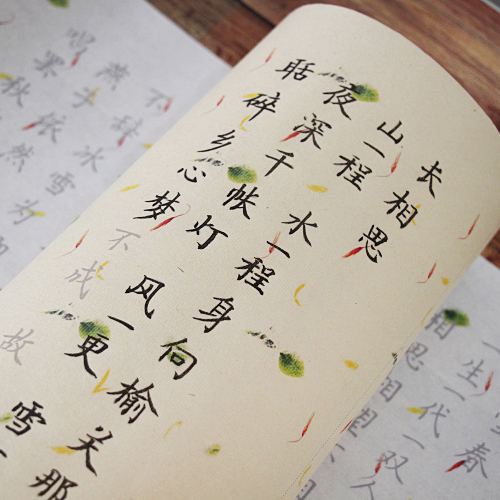 长相思
山一程水一程身向榆关那
夜深千帐灯风一更雪一
聒碎乡心梦不成故
不辞冰雪为
燕子依然
唱罢秋
春
一生一代一双
相思相望